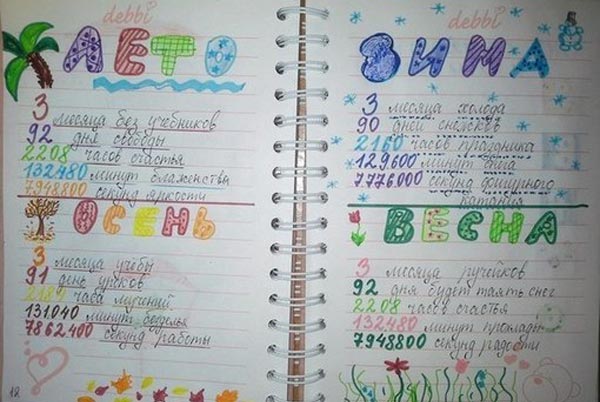 debbi
ЛЕТО
3 месяца без учебников
92 дня свободы
2208 часов счастья
132480 минут блаженства
7948800 секунд яркости
ОСЕНЬ
3 месяца учёбы
91 день уроков
часа мучений
131.040 минут безделья
7862400 секунд работы
18
debbi
ЗИМА
3 месяца холода
90 дней снежков
2160 часов праздника
129600 минут
7.776.000 секунд фигурного
катания
ВЕСНА
3 месяца ручейков
92 дня будет таять снег
2208 часов счастья
132480 минут прохлады
7948800 секунд радости